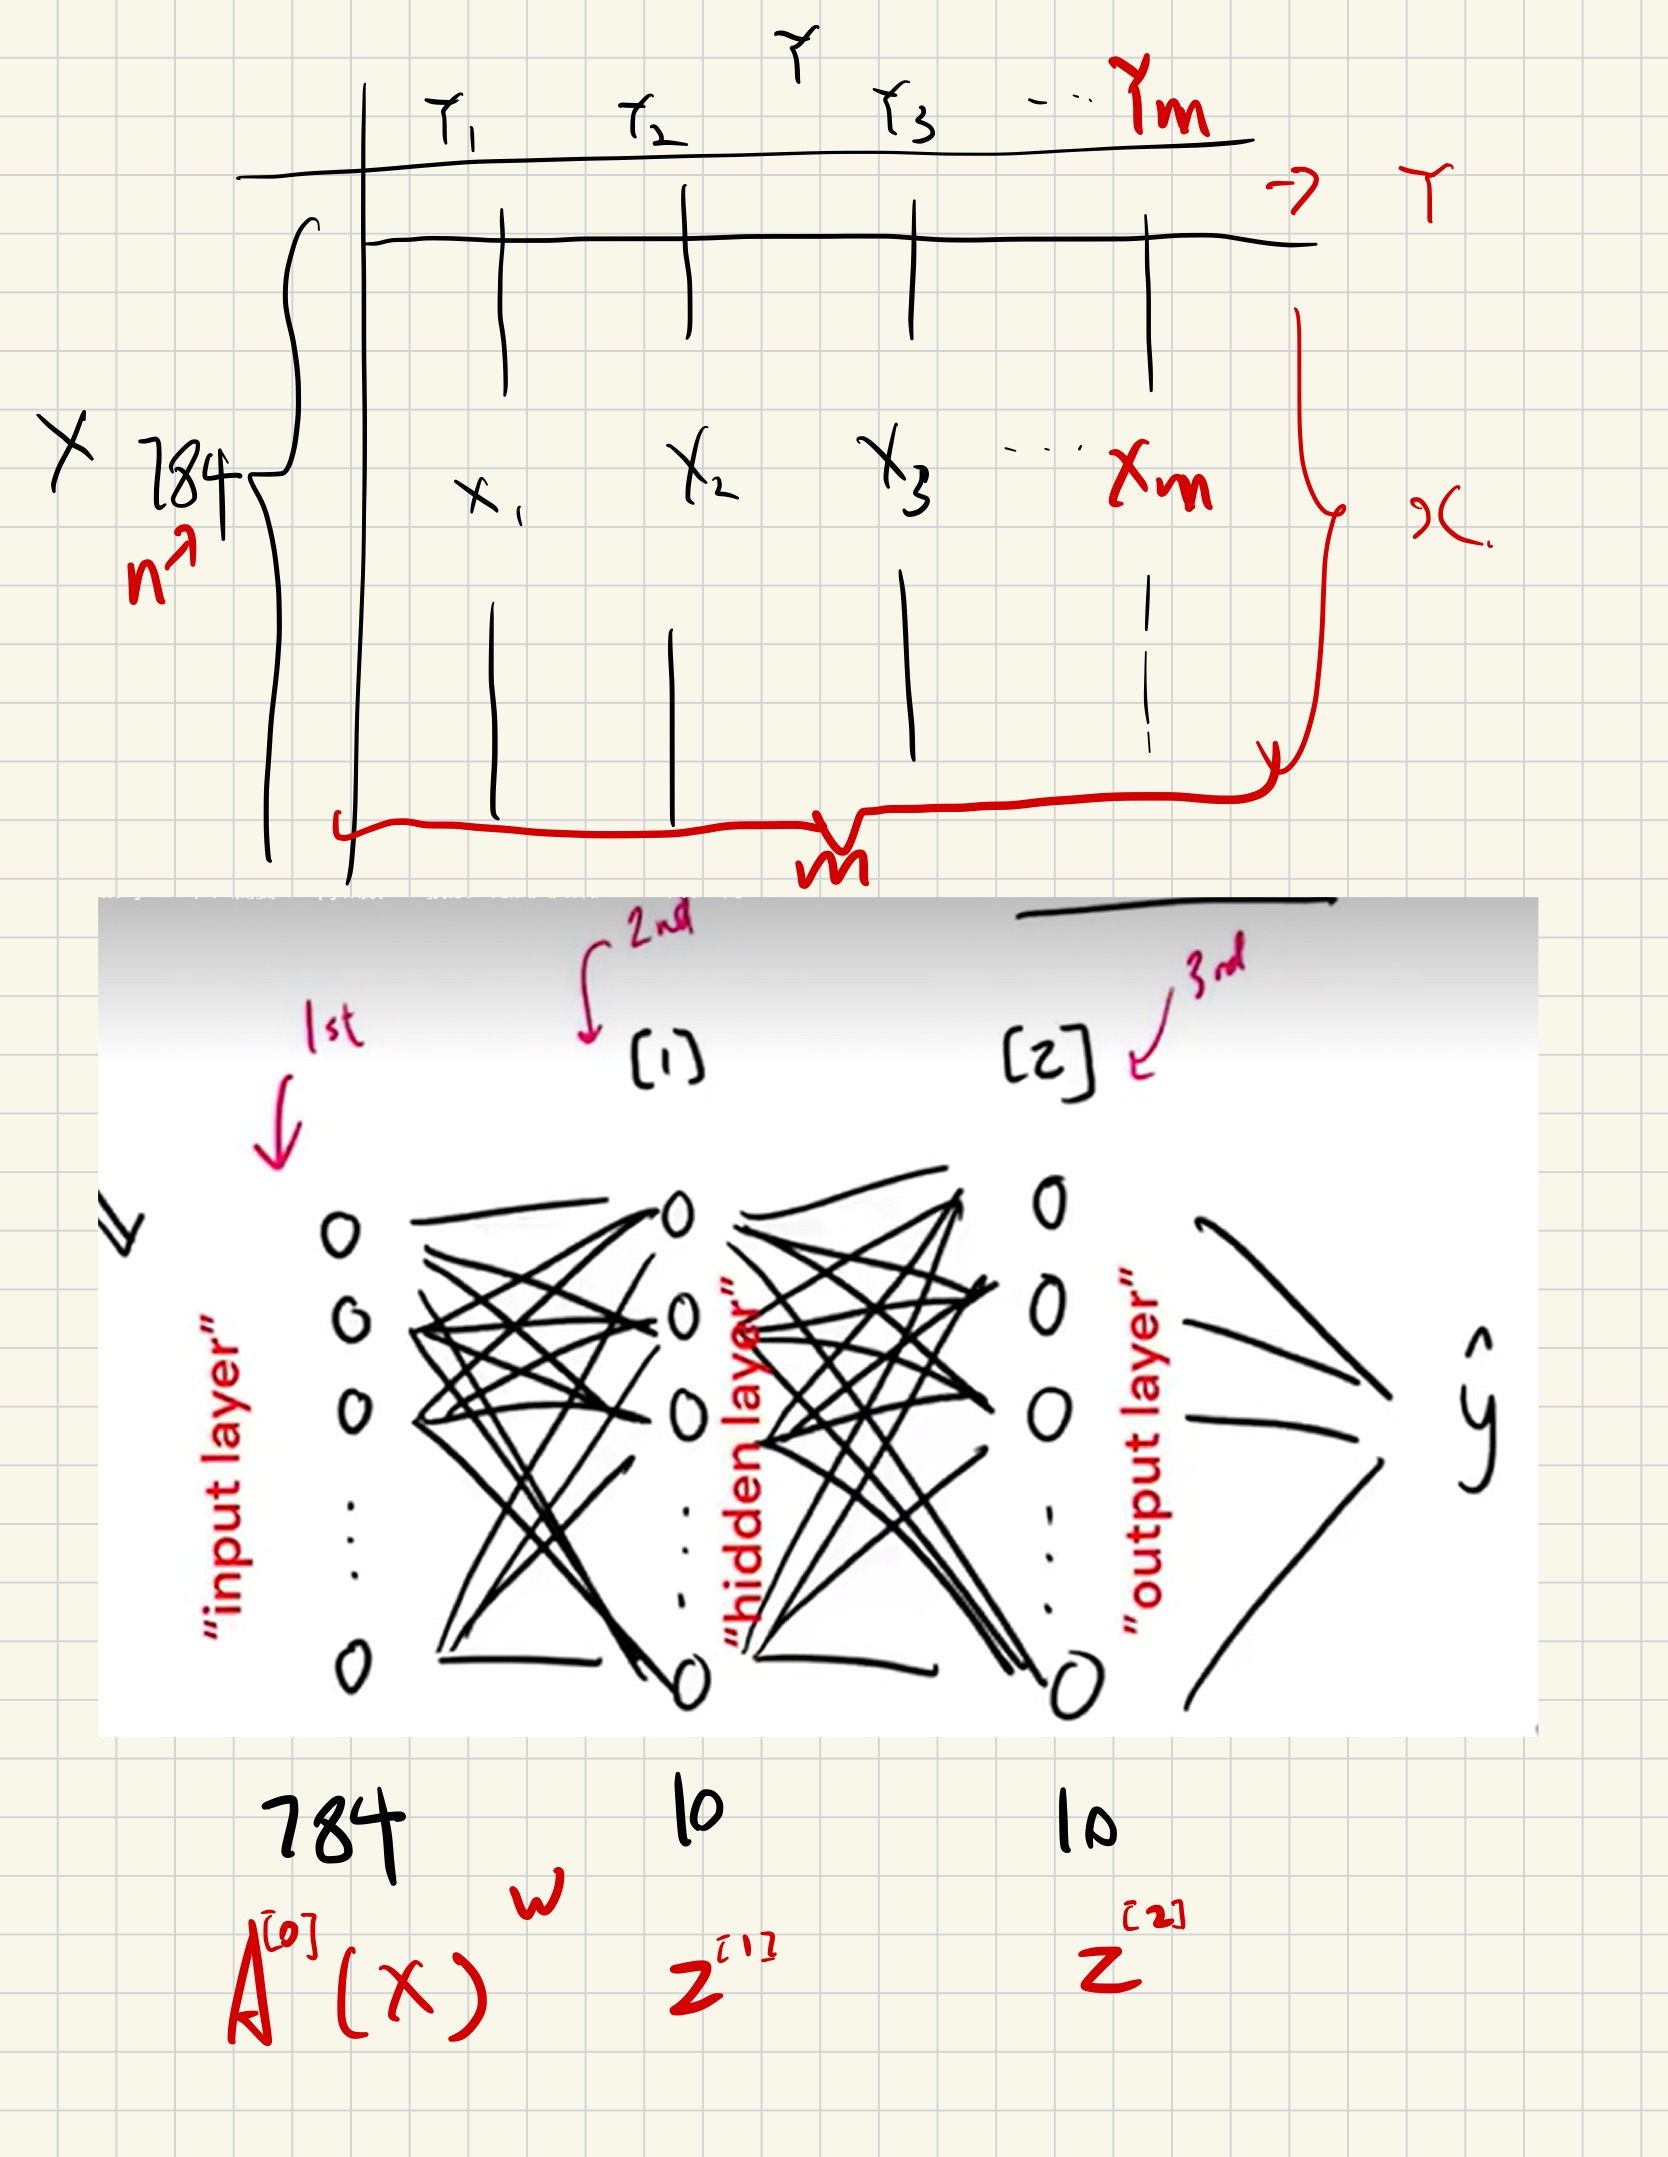 Y
Y1 Y2 Y3 - - - Ym
→ Y
X 784 X1 X2 X3 - - - Xm x
n
m
2nd
3rd
1st
[1] [2]
"input layer" "hidden layer" "output layer"
ŷ
784 10 10
W
A[0] (X) Z[1] Z[2]